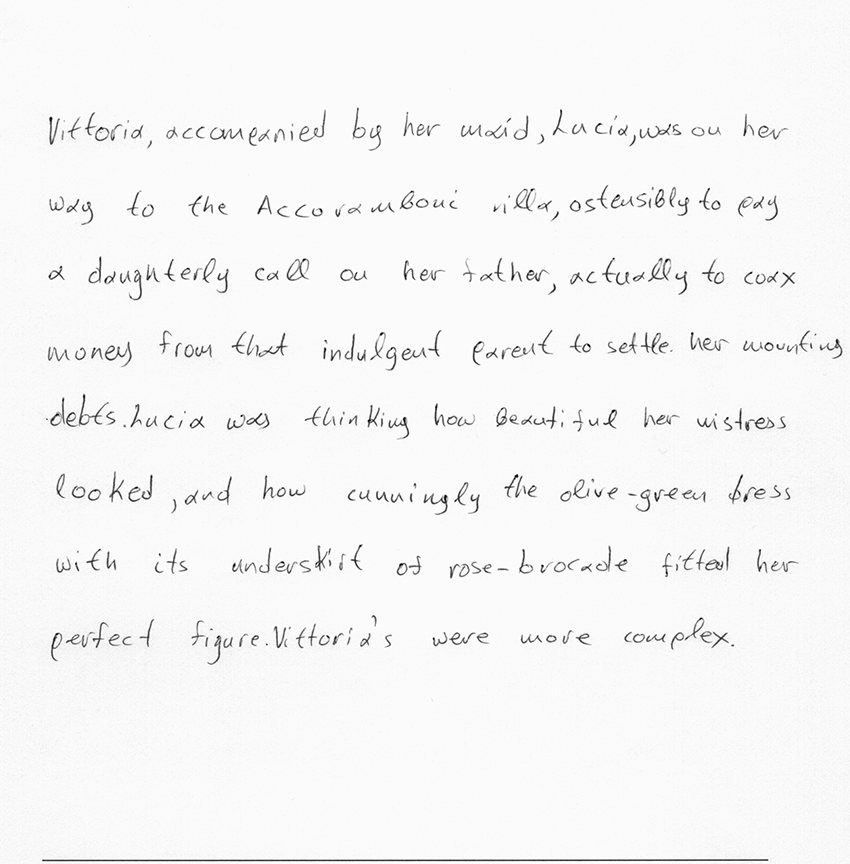 Vittoria, accompanied by her maid, Lucia, was on her
way to the Accoramboni villa, ostensibly to pay
a daughterly call on her father, actually to coax
money from that indulgent parent to settle her mounting
debts. Lucia was thinking how beautiful her mistress
looked, and how cunningly the olive-green dress
with its underskirt of rose-brocade fitted her
perfect figure. Vittoria's were more complex.